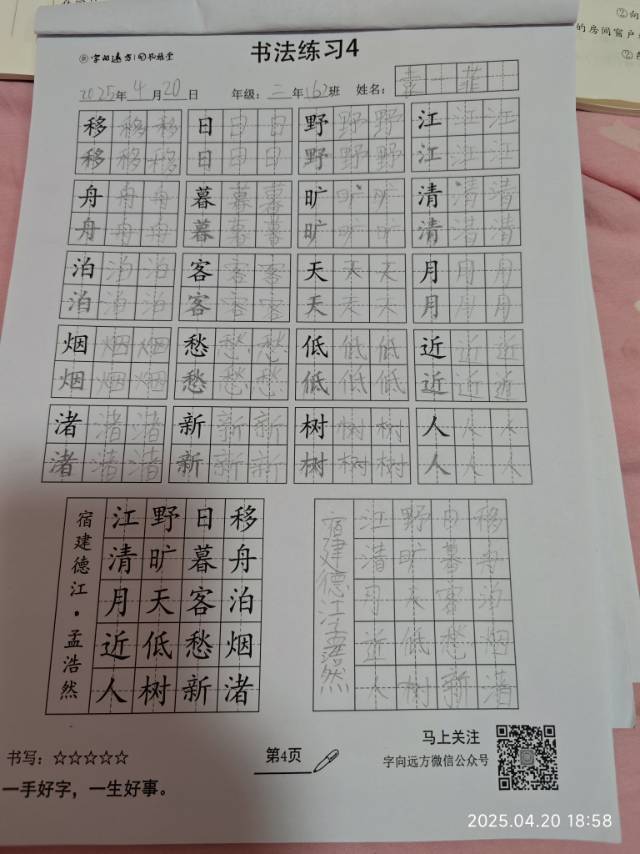 书法练习4
2025年4月20日 年级:三年162班 姓名:
移移移日日日野野野江江江
移移移日日日野野野江江江
舟舟舟暮暮暮旷旷旷清清清
舟舟舟暮暮暮旷旷旷清清清
泊泊泊客客客天天天月月月
泊泊泊客客客天天天月月月
烟烟烟愁愁愁低低低近近近
烟烟烟愁愁愁低低低近近近
渚渚渚新新新树树树人人人
渚渚渚新新新树树树人人人
移舟泊烟渚
日暮客愁新
野旷天低树
江清月近人
宿建德江·孟浩然
移舟泊烟渚
日暮客愁新
野旷天低树
江清月近人
宿建德江孟浩然
书写:☆☆☆☆☆
一手好字,一生好事。
第4页
马上关注
字向远方微信公众号
2025.04.20 18:58
②向
的房间窗户